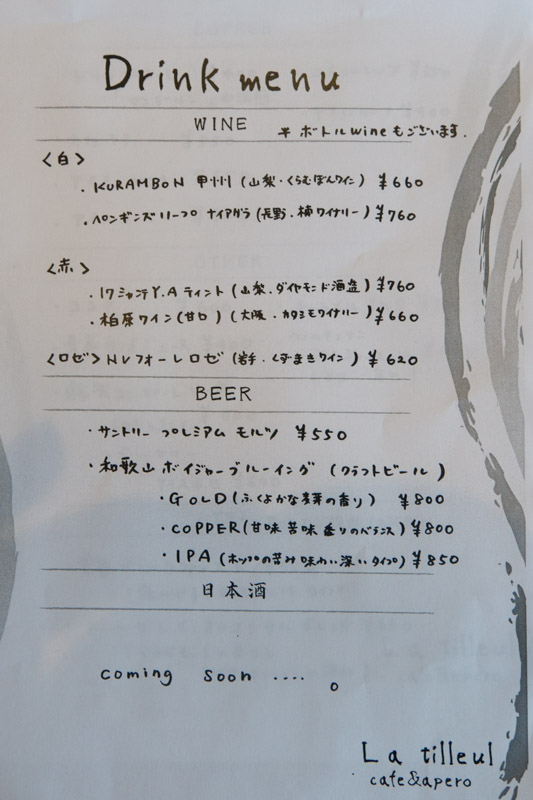 Drink menu
WINE
＊ボトルwineもございます.
〈白〉
・KURAMBON 甲州 (山梨・くらむぼんワイン) ¥660
・ペンギンズリープ ナイアガラ (長野・楠ワイナリー) ¥760
〈赤〉
・17シャンテY.A ティント (山梨・ダイヤモンド酒造) ¥760
・柏原ワイン(甘口) (大阪・カタシモワイナリー) ¥660
〈ロゼ〉NVフォーレロゼ (岩手・くずまきワイン) ¥620
BEER
・サントリー プレミアム モルツ ¥550
・和歌山ボイジャーブルーイング (クラフトビール)
・GOLD (ふくよかな麦芽の香り) ¥800
・COPPER (甘味 苦味 香りのバランス) ¥800
・IPA (ホップの苦み味わい深いタイプ) ¥850
日本酒
coming soon ....。
La tilleul
cafe&apero